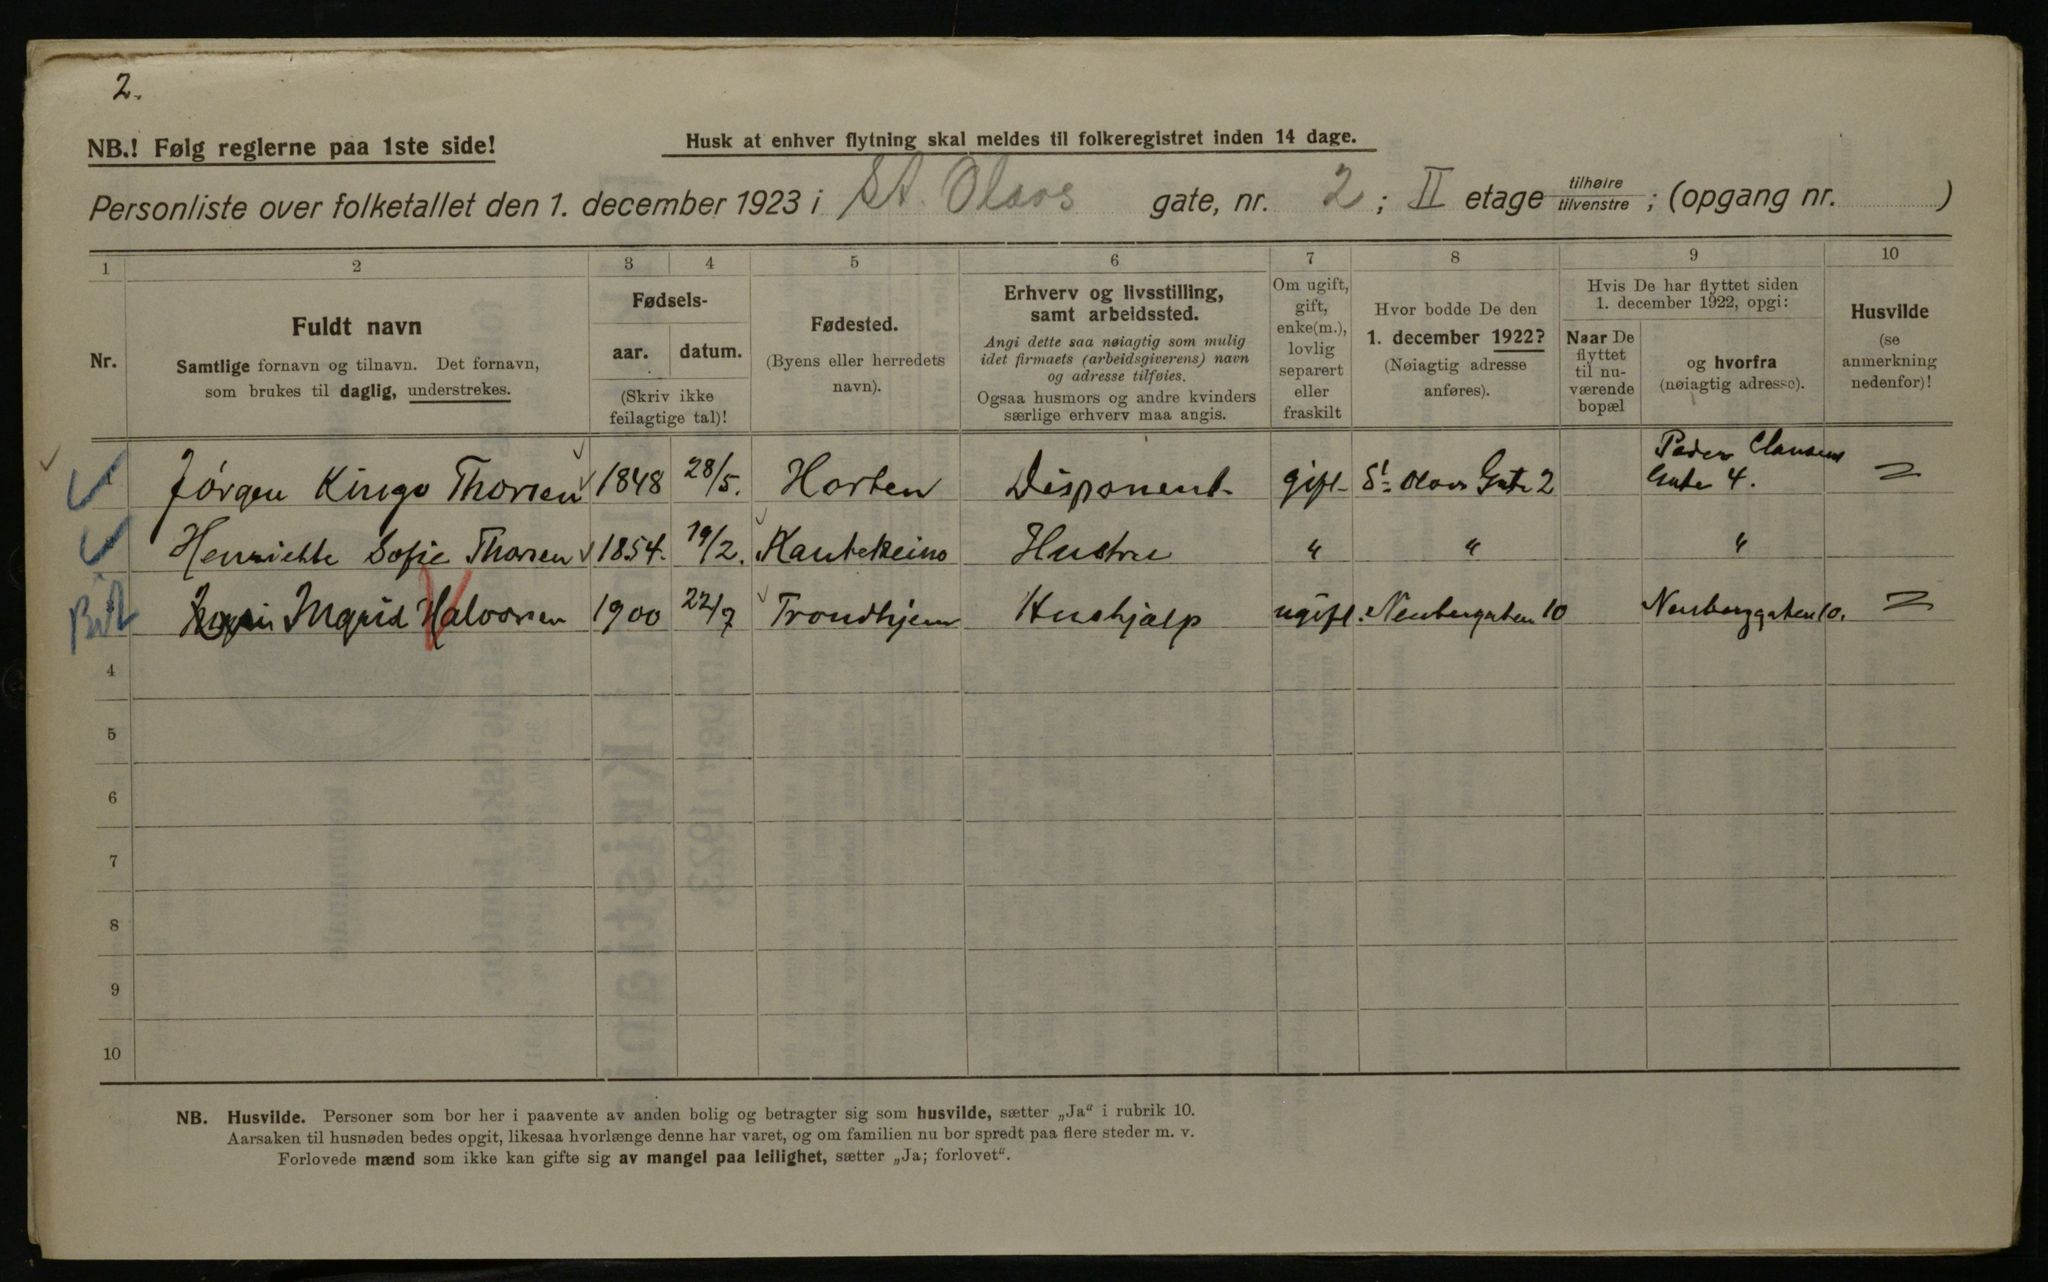 2.
NB.! Følg reglerne paa 1ste side!
Husk at enhver flytning skal meldes til folkeregistret inden 14 dage.
Personliste over folketallet den 1. december 1923 i St. Olavs gate, nr. 2; II etage tilhøire tilvenstre; (opgang nr. )
1 2 3 4 5 6 7 8 9 10
Nr.
Fuldt navn
Samtlige fornavn og tilnavn. Det fornavn,
som brukes til daglig, understrekes.
Fødsels-
aar. datum.
(Skriv ikke
feilagtige tal)!
Fødested.
(Byens eller herredets
navn).
Erhverv og livsstilling,
samt arbeidssted.
Angi dette saa nøiagtig som mulig
idet firmaets (arbeidsgiverens) navn
og adresse tilføies.
Ogsaa husmors og andre kvinders
særlige erhverv maa angis.
Om ugift,
gift,
enke(m.),
lovlig
separert
eller
fraskilt
Hvor bodde De den
1. december 1922?
(Nøiagtig adresse
anføres).
Hvis De har flyttet siden
1. december 1922, opgi:
Naar De
flyttet
til nu-
værende
bopæl
og hvorfra
(nøiagtig adresse).
Husvilde
(se
anmerkning
nedenfor)!
Jørgen Kingo Thorsen 1848 28/5. Horten Disponent gift St Olavs Gate 2 Peder Clausens Gate 4.
Henriette Sofie Thorsen 1854. 19/2. Kautekeino Hustru " " "
Ingrid Halvorsen 1900 22/7 Trondhjem Hushjælp ugift. Neubergaten 10 Neuberggaten 10.
4
5
6
7
8
9
10
NB. Husvilde. Personer som bor her i paavente av anden bolig og betragter sig som husvilde, sætter „Ja“ i rubrik 10.
Aarsaken til husnøden bedes opgit, likesaa hvorlænge denne har varet, og om familien nu bor spredt paa flere steder m. v.
Forlovede mænd som ikke kan gifte sig av mangel paa leilighet, sætter „Ja; forlovet“.